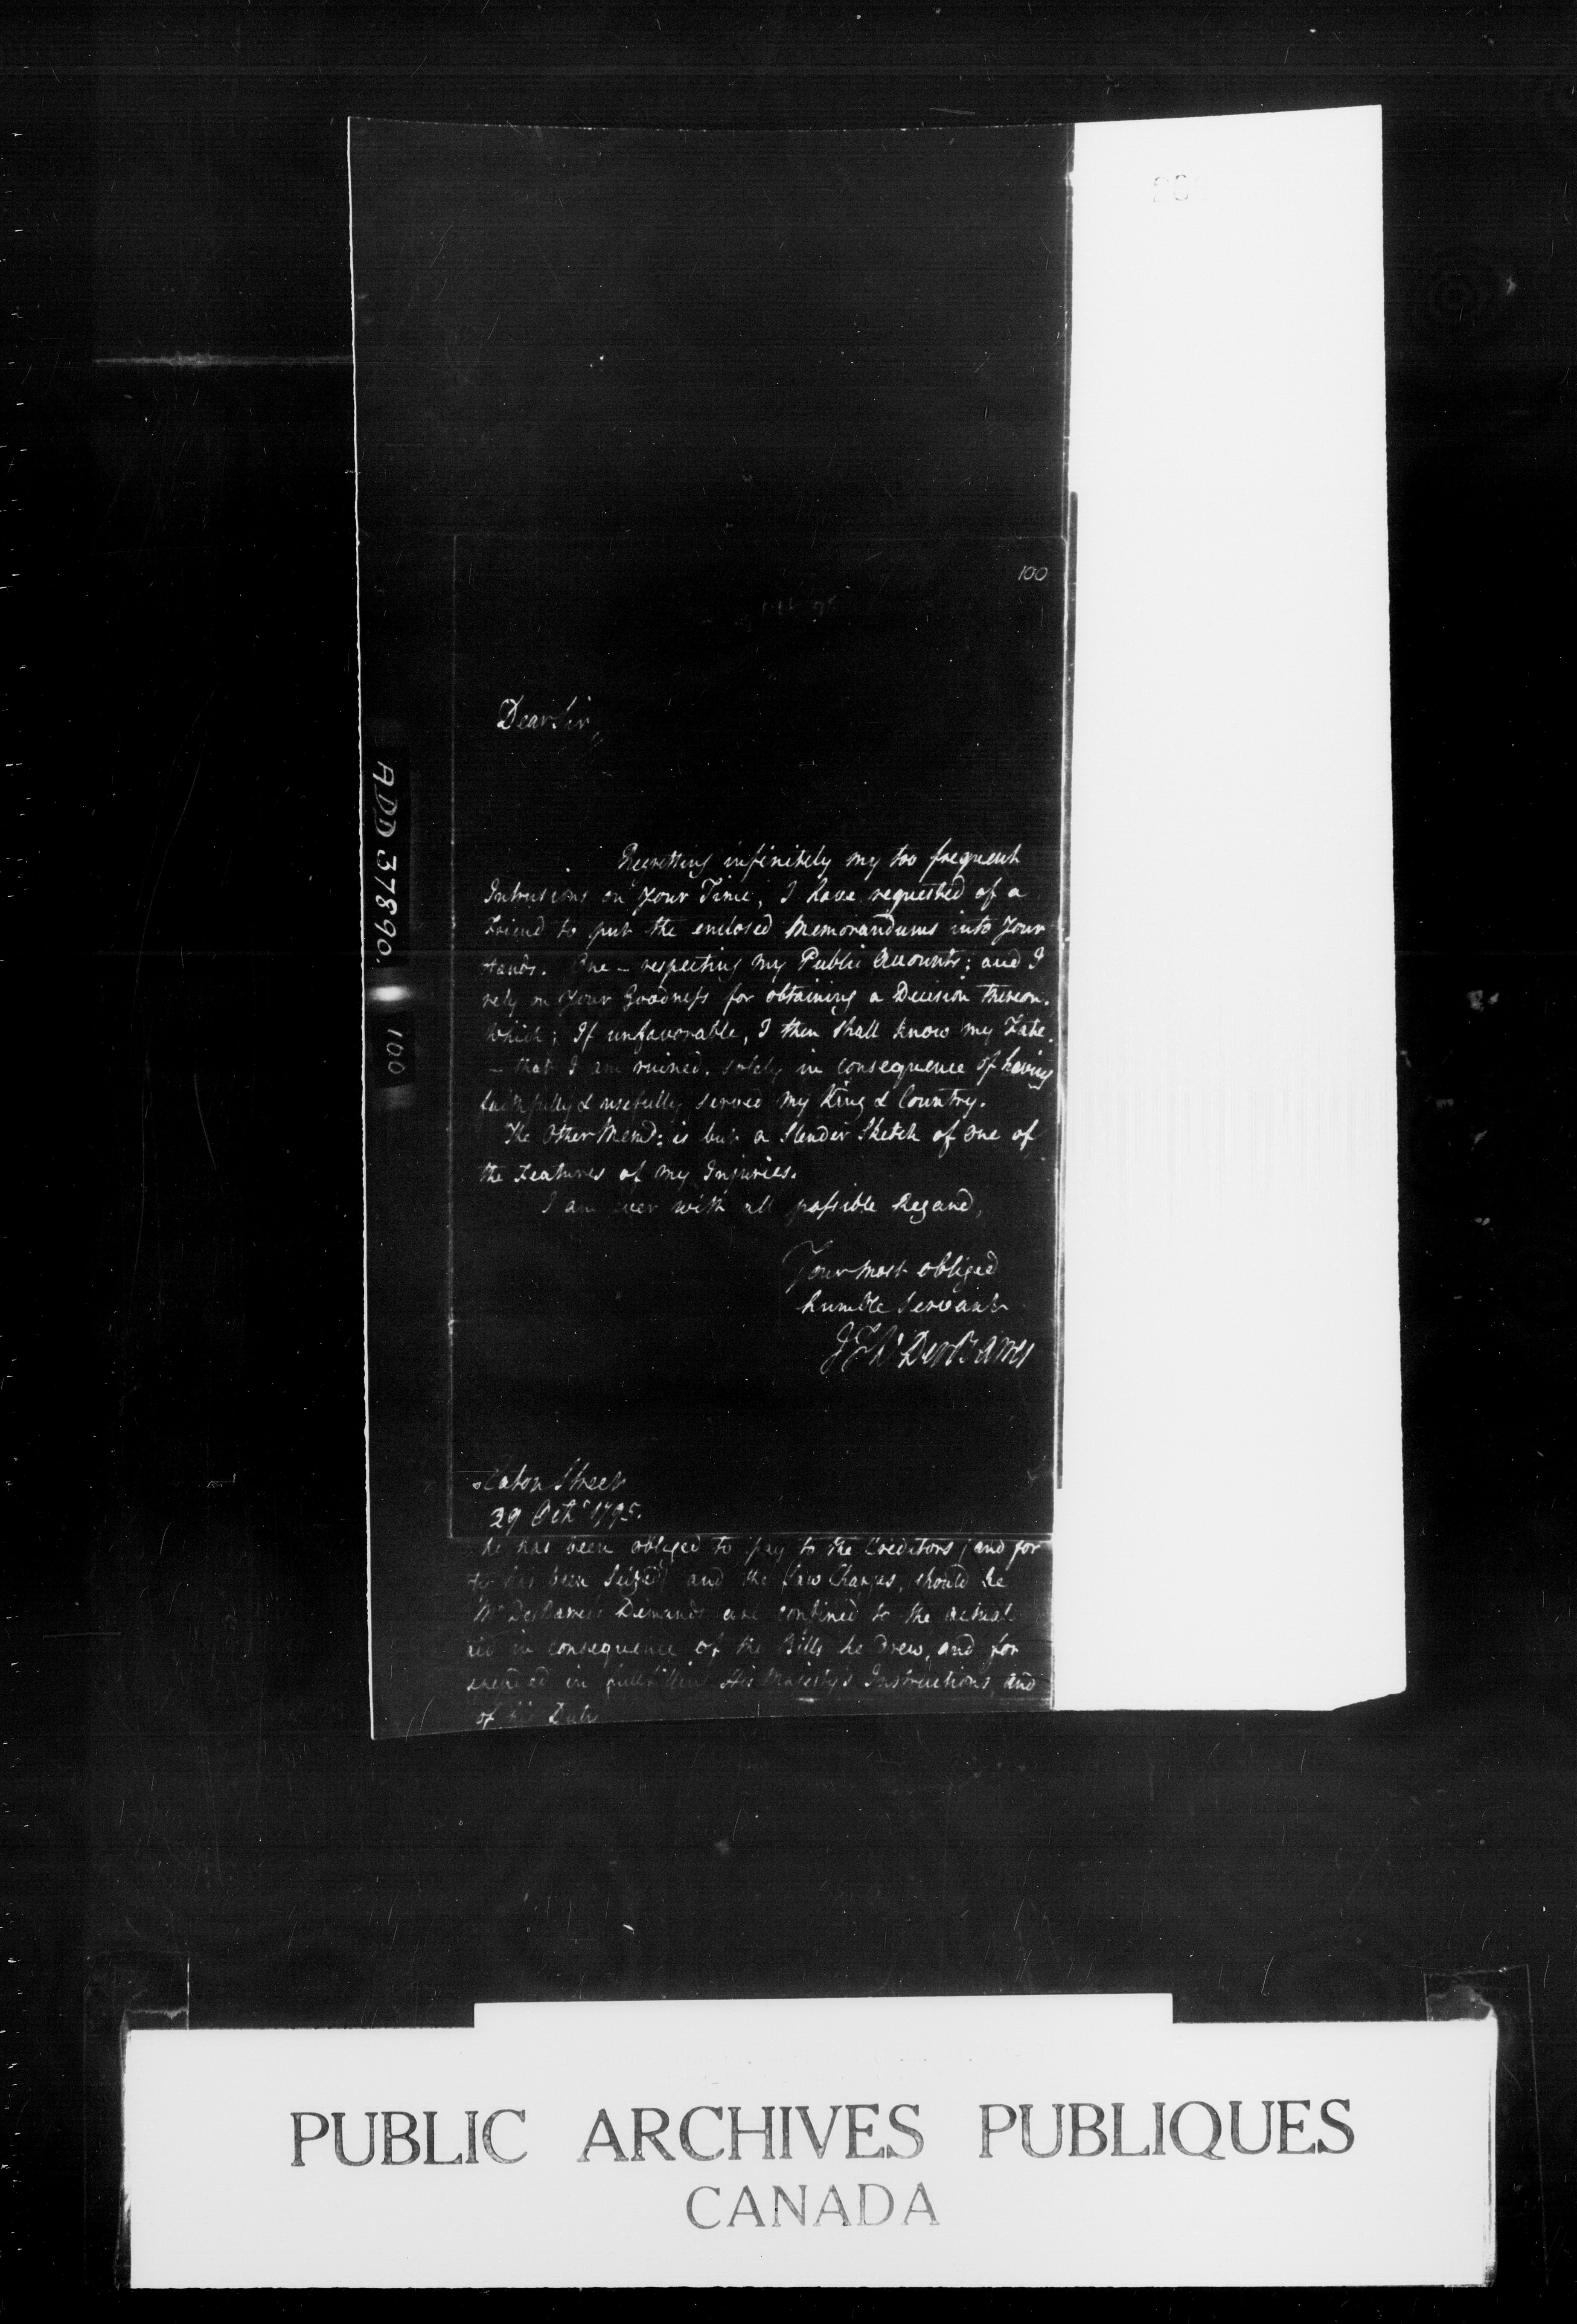 100
Dear Sir,
Regretting infinitely my too frequent
Intrusions on Your Time, I have requested of a
Friend to put the enclosed Memorandums into Your
Hands. One – respecting My Public Accounts; and I
rely on Your Goodness for obtaining a Decision thereon.
Which; If unfavorable, I then shall know my Fate.
– that I am ruined. solely in consequence of having
faithfully & usefully served My King & Country.
The Other Memd: is but a Slender Sketch of one of
the Features of My Injuries.
I am ever with all possible Regard,
Your most obliged
humble Servant
DesBarres
Eaton Street
29 Octr 1795.
he has been obliged to pay to the Creditors; and for
has been Seized, and the Law Charges, should he
Mr DesBarres's Demands are confined to the actual
in consequence of the Bills he drew, and for
in fullfilling His Majesty's Instructions, and
of his Duty
ADD 37890.
100
PUBLIC ARCHIVES PUBLIQUES
CANADA